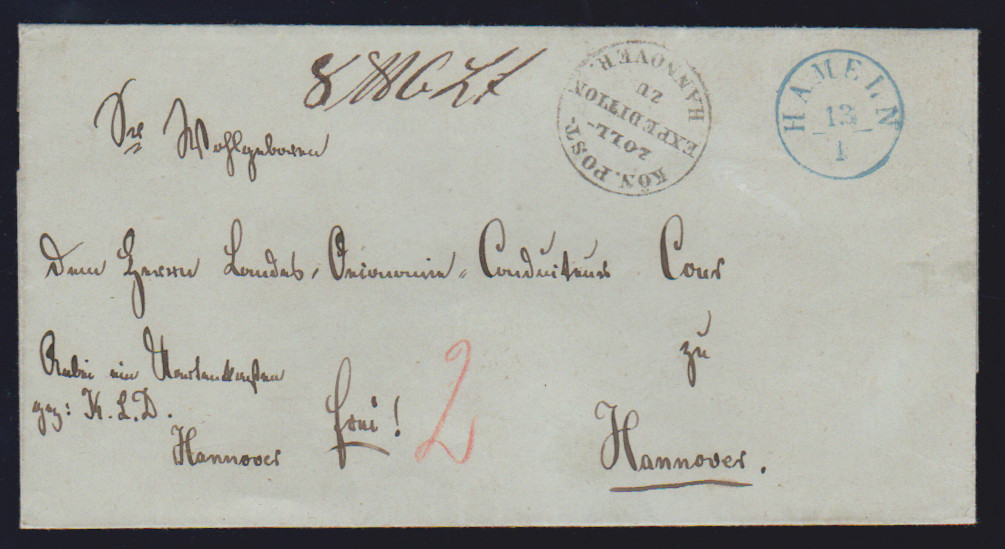 8 M 6 Lt
KÖN. POST-
ZOLL-
EXPEDITION
ZU
HANNOVER.
HAMELN
13
1
Sr Wohlgeboren
Dem Herrn Landes-Oeconomie-Conducteur
zu
Hannover.
Anbei ein Kartenkasten
gez: K. L. D.
Hannover
frei!
2